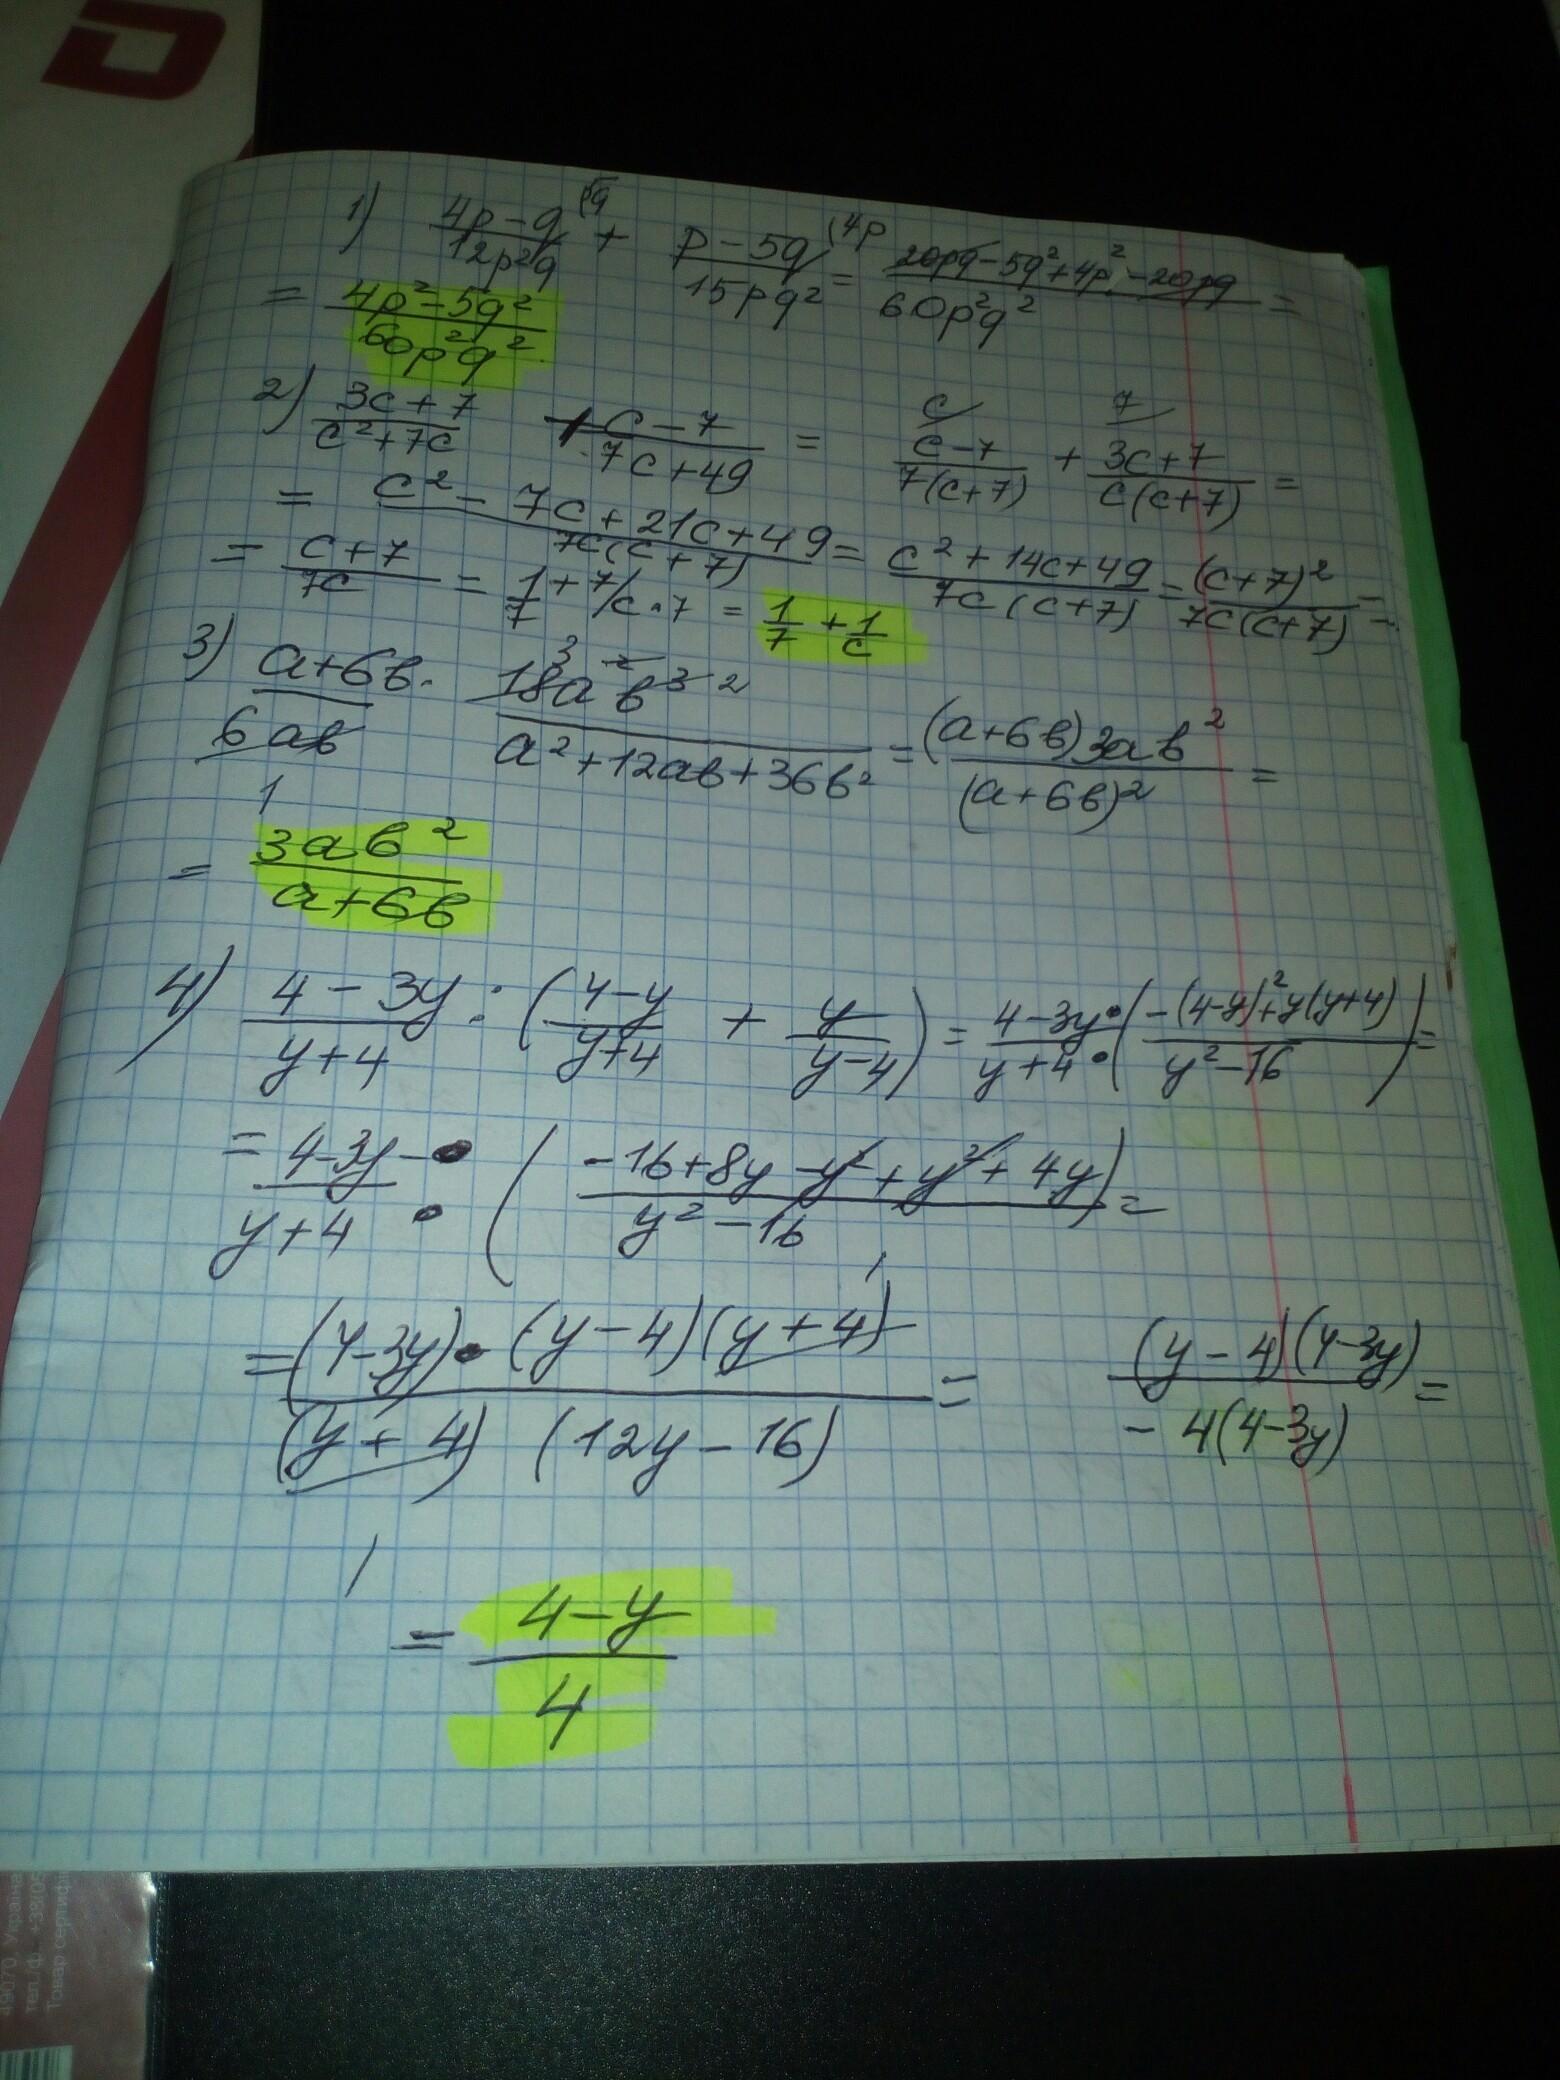 1) (4p-q)/(12p²q) (5q + (p-5q)/(15pq²) (4p = (20pq-5q²+4p²-20pq)/(60p²q²) =
= (4p²-5q²)/(60p²q²)
2) (3c+7)/(c²+7c) + (c-7)/(7c+49) = c (c-7)/(7(c+7)) + 7 (3c+7)/(c(c+7)) =
= (c²-7c+21c+49)/(7c(c+7)) = (c²+14c+49)/(7c(c+7)) = (c+7)²/(7c(c+7)) =
= (c+7)/(7c) = 1/7 + 7/c·7 = 1/7 + 1/c
3) (a+6b)/(6ab) · (18a²b³)/(a²+12ab+36b²) = ((a+6b)3ab²)/((a+6b)²) =
= (3ab²)/(a+6b)
4) (4-3y)/(y+4) : ((4-y)/(y+4) + y/(y-4)) = (4-3y)/(y+4) : ((-(4-y)²+y(y+4))/(y²-16)) =
= (4-3y)/(y+4) : ((-16+8y-y²+y²+4y)/(y²-16)) =
= ((4-3y)·(y-4)(y+4))/((y+4)(12y-16)) = ((y-4)(4-3y))/(-4(4-3y)) =
= (4-y)/4
49070, Україна
тел./ф. +3805
Товар сертифі